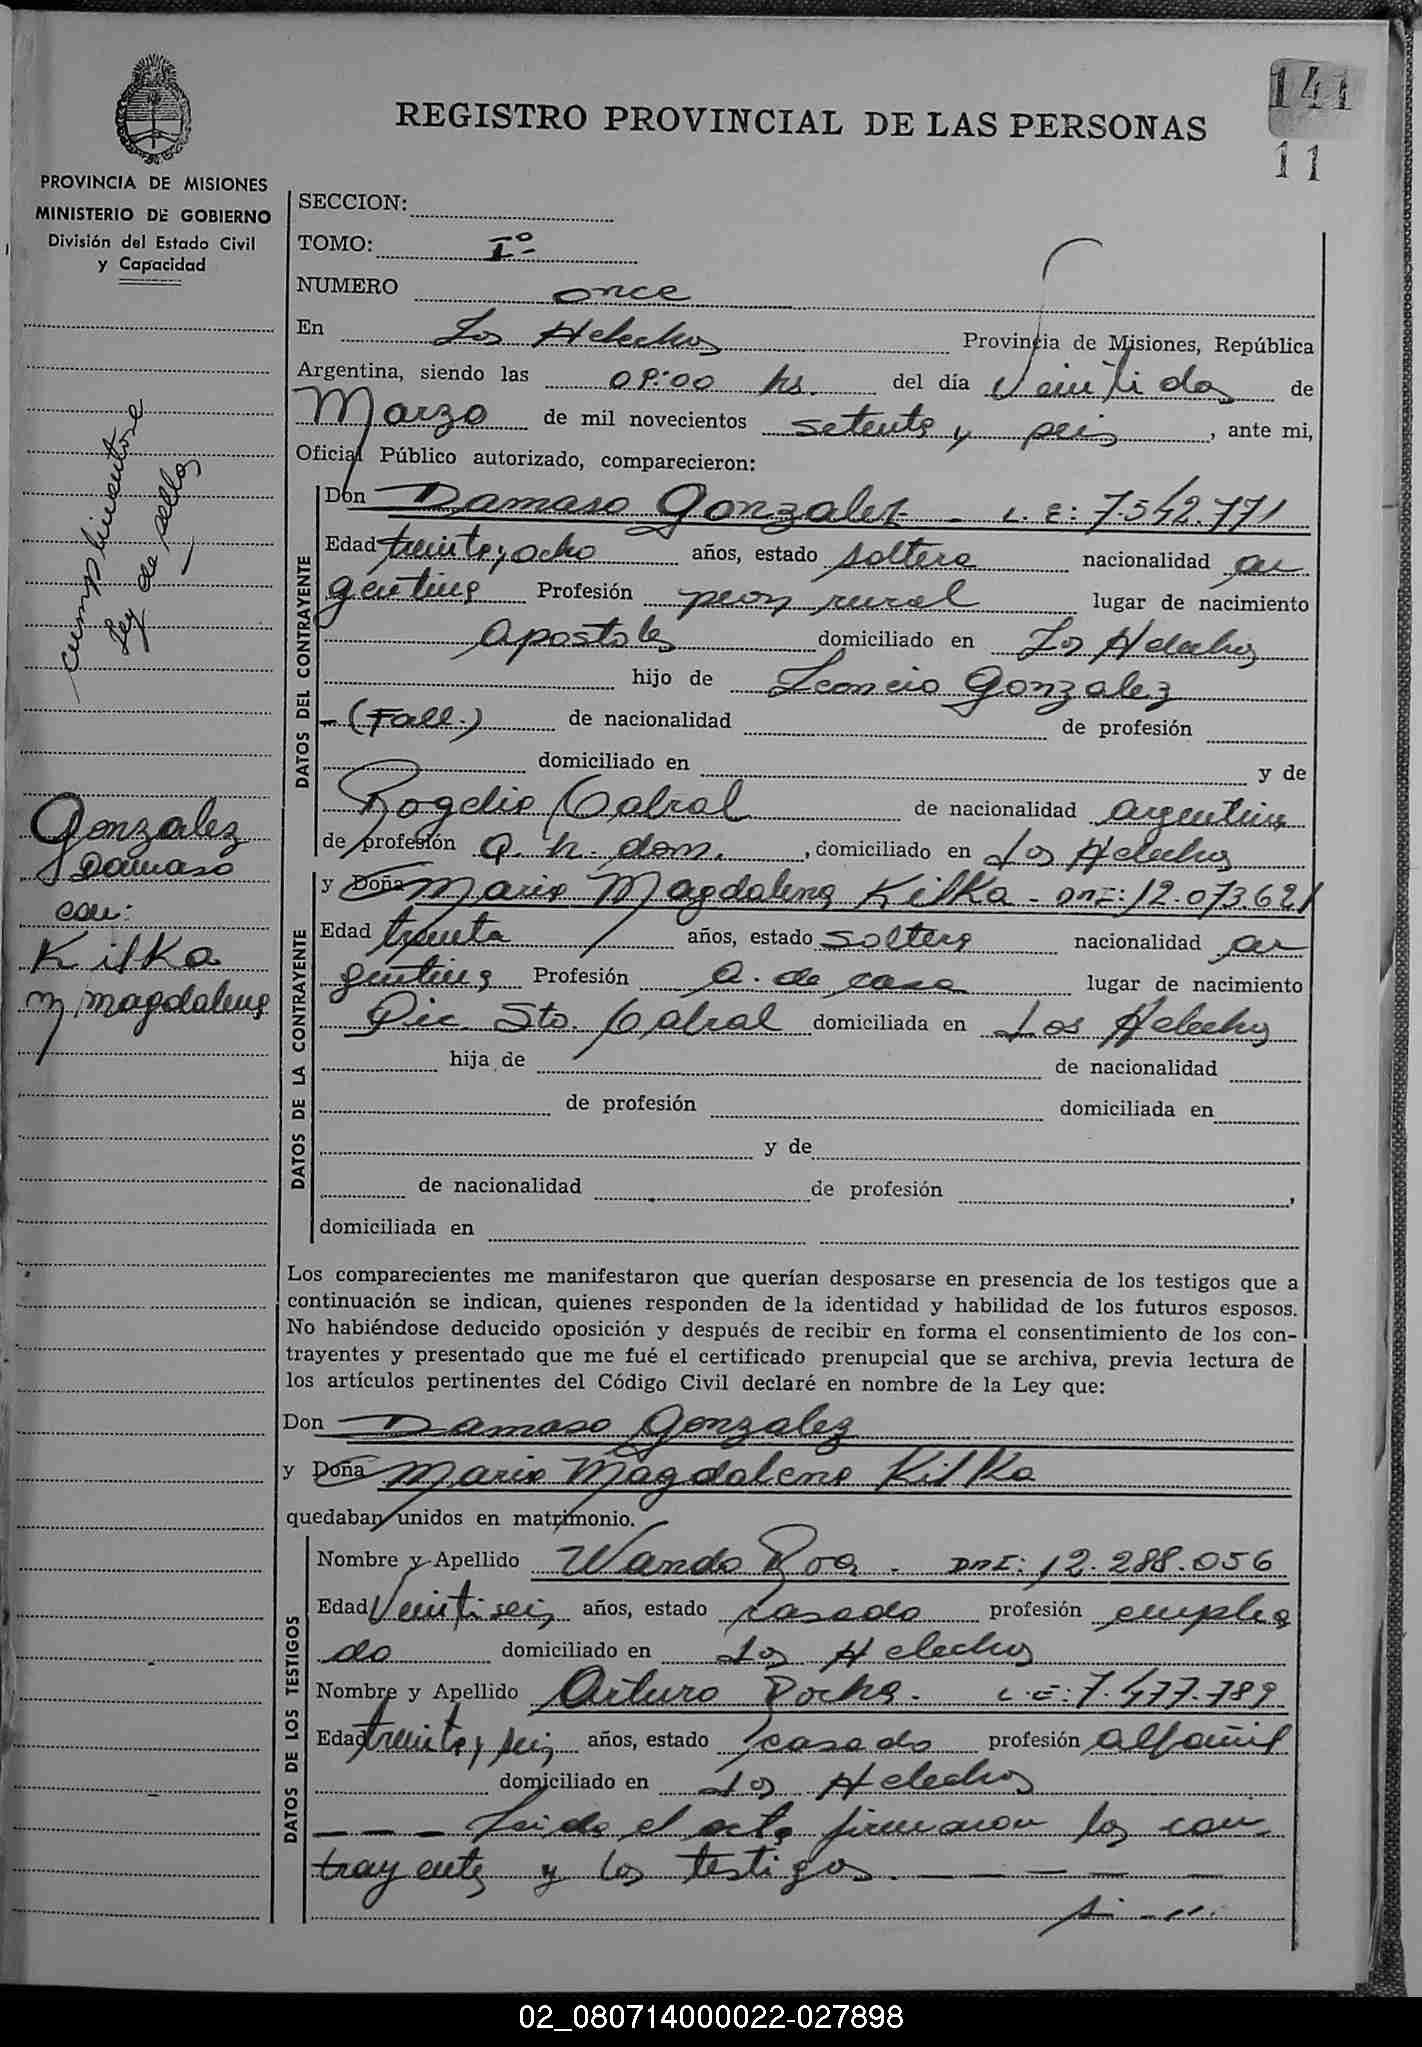 141
REGISTRO PROVINCIAL DE LAS PERSONAS
11
PROVINCIA DE MISIONES
MINISTERIO DE GOBIERNO
División del Estado Civil
y Capacidad
cumplimentose
ley de sellos
Gonzalez
Damaso
con:
Kilka
M. Magdalena
SECCION:
TOMO: Iº
NUMERO once
En Los Helechos Provincia de Misiones, República
Argentina, siendo las 09:00 hs. del día Veintidos de
Marzo de mil novecientos setenta y seis, ante mi,
Oficial Público autorizado, comparecieron:
DATOS DEL CONTRAYENTE
Don Damaso Gonzalez - L.E: 7.542.771
Edad treinta y ocho años, estado soltero nacionalidad ar
gentina Profesión peon rural lugar de nacimiento
Apostoles domiciliado en Los Helechos
hijo de Leoncio Gonzalez
- (Fall.) de nacionalidad de profesión
domiciliado en y de
Rogelia Cabral de nacionalidad argentina
de profesión Q. h. dom., domiciliado en Los Helechos
DATOS DE LA CONTRAYENTE
y Doña Maria Magdalena Kilka - DNI: 12.073.621
Edad treinta años, estado soltera nacionalidad ar
gentina Profesión a. de casa lugar de nacimiento
Pic. Sto. Cabral domiciliada en Los Helechos
hija de de nacionalidad
de profesión domiciliada en
y de
de nacionalidad de profesión ,
domiciliada en
Los comparecientes me manifestaron que querían desposarse en presencia de los testigos que a
continuación se indican, quienes responden de la identidad y habilidad de los futuros esposos.
No habiéndose deducido oposición y después de recibir en forma el consentimiento de los con-
trayentes y presentado que me fué el certificado prenupcial que se archiva, previa lectura de
los artículos pertinentes del Código Civil declaré en nombre de la Ley que:
Don Damaso Gonzalez
y Doña Maria Magdalena Kilka
quedaban unidos en matrimonio.
DATOS DE LOS TESTIGOS
Nombre y Apellido Wando Roa. DNI: 12.288.056
Edad Veintiseis años, estado casado profesión emplea
do domiciliado en Los Helechos
Nombre y Apellido Arturo Rocha. L.E: 7.477.789
Edad treinta y seis años, estado casado profesión albañil
domiciliado en Los Helechos
- - - Leida el acta firmaron los con
trayentes y los testigos. - - - -
02_080714000022-027898